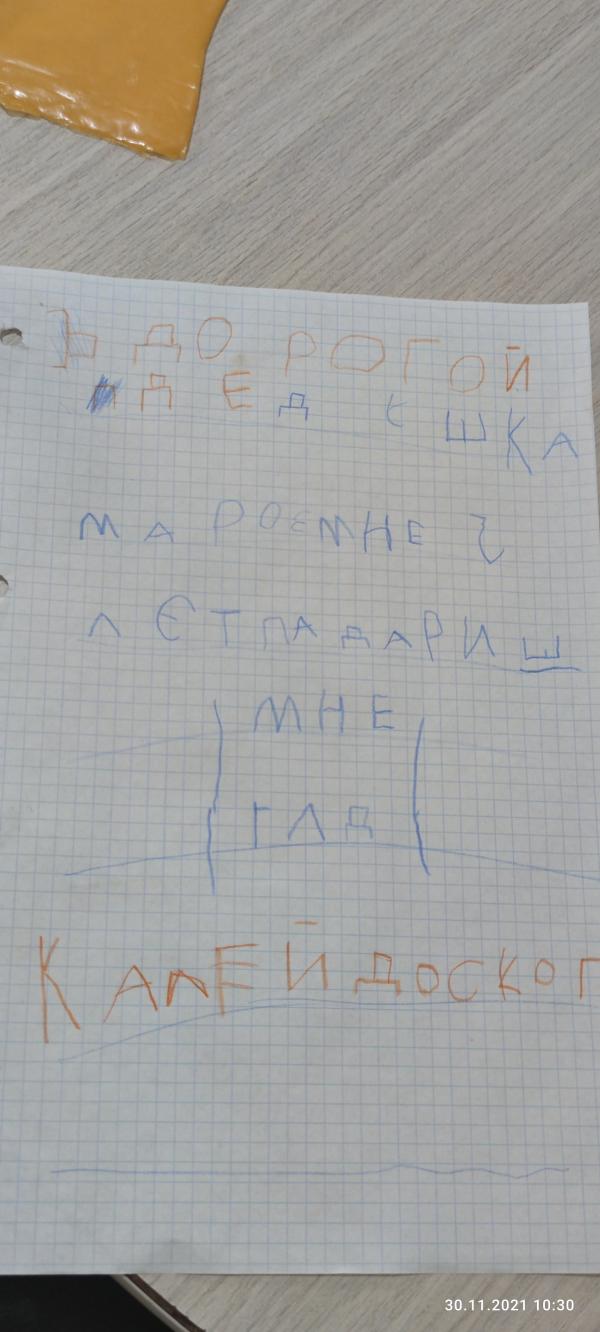 ДОРОГОЙ
ДЕДЕШКА
МАРОЕМНЕ 7
ЛЕТПАДАРИШ
МНЕ
ГЛД
КАЛЕЙДОСКОП
30.11.2021 10:30